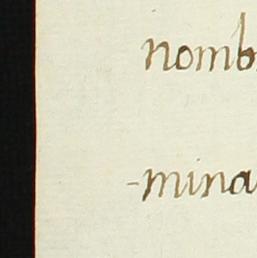 nomb
-mina